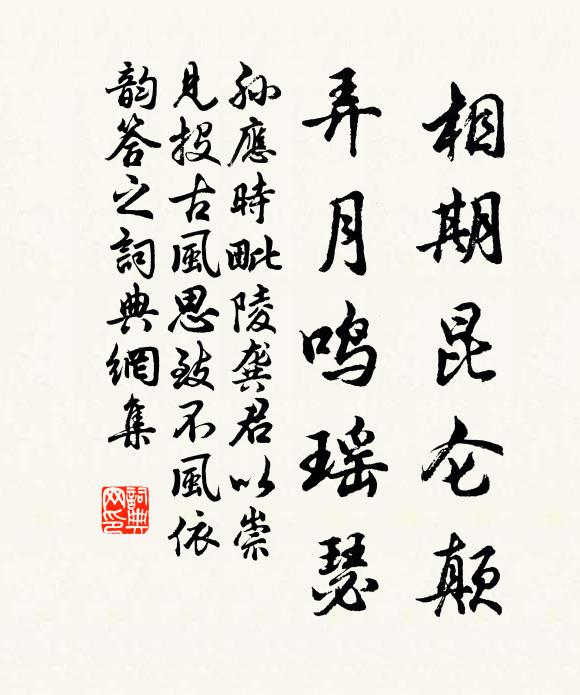 相期昆仑颠
弄月鸣瑶瑟
孙應時毗陵龚君以崇
見投古風思致不風依
韵答之詞典網集
詞典網印